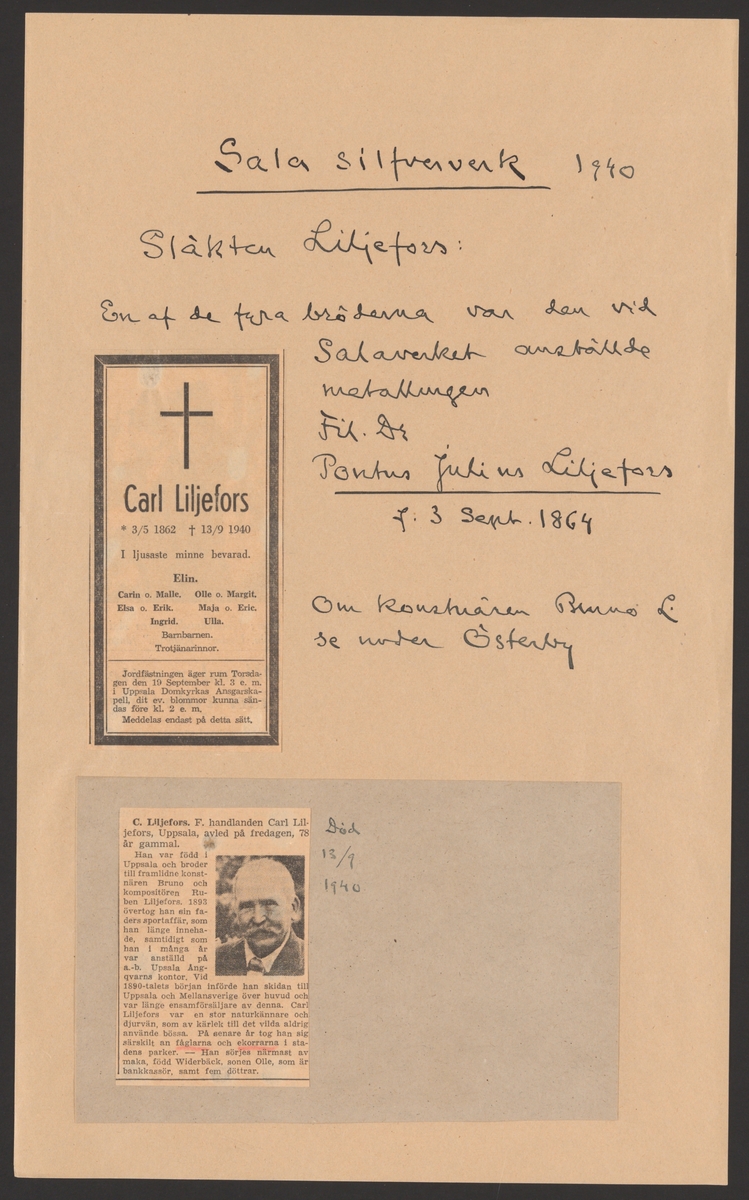 Sala silfververk 1940
Släkten Liljefors:
En af de fyra bröderna var den vid
Salaverket anställde
metallurgen
Fil. Dr
Pontus Julius Liljefors
f: 3 Sept. 1864
Om konstnären Bruno L.
se under Österby
Carl Liljefors
* 3/5 1862 † 13/9 1940
I ljusaste minne bevarad.
Elin.
Carin o. Malle. Olle o. Margit.
Elsa o. Erik. Maja o. Eric.
Ingrid. Ulla.
Barnbarnen.
Trotjänarinnor.
Jordfästningen äger rum Torsda-
gen den 19 September kl. 3 e. m.
i Uppsala Domkyrkas Ansgarska-
pell, dit ev. blommor kunna sän-
das före kl. 2 e. m.
Meddelas endast på detta sätt.
C. Liljefors. F. handlanden Carl Lil-
jefors, Uppsala, avled på fredagen, 78
år gammal.
Han var född i
Uppsala och broder
till framlidne konst-
nären Bruno och
kompositören Ru-
ben Liljefors. 1893
övertog han sin fa-
ders sportaffär, som
han länge inneha-
de, samtidigt som
han i många år
var anställd på
a.-b. Upsala Ång-
qvarns kontor. Vid
1890-talets början införde han skidan till
Uppsala och Mellansverige över huvud och
var länge ensamförsäljare av denna. Carl
Liljefors var en stor naturkännare och
djurvän, som av kärlek till det vilda aldrig
använde bössa. På senare år tog han sig
särskilt an fåglarna och ekorrarna i sta-
dens parker. — Han sörjes närmast av
maka, född Widerbäck, sonen Olle, som är
bankkassör, samt fem döttrar.
Död
13/9
1940